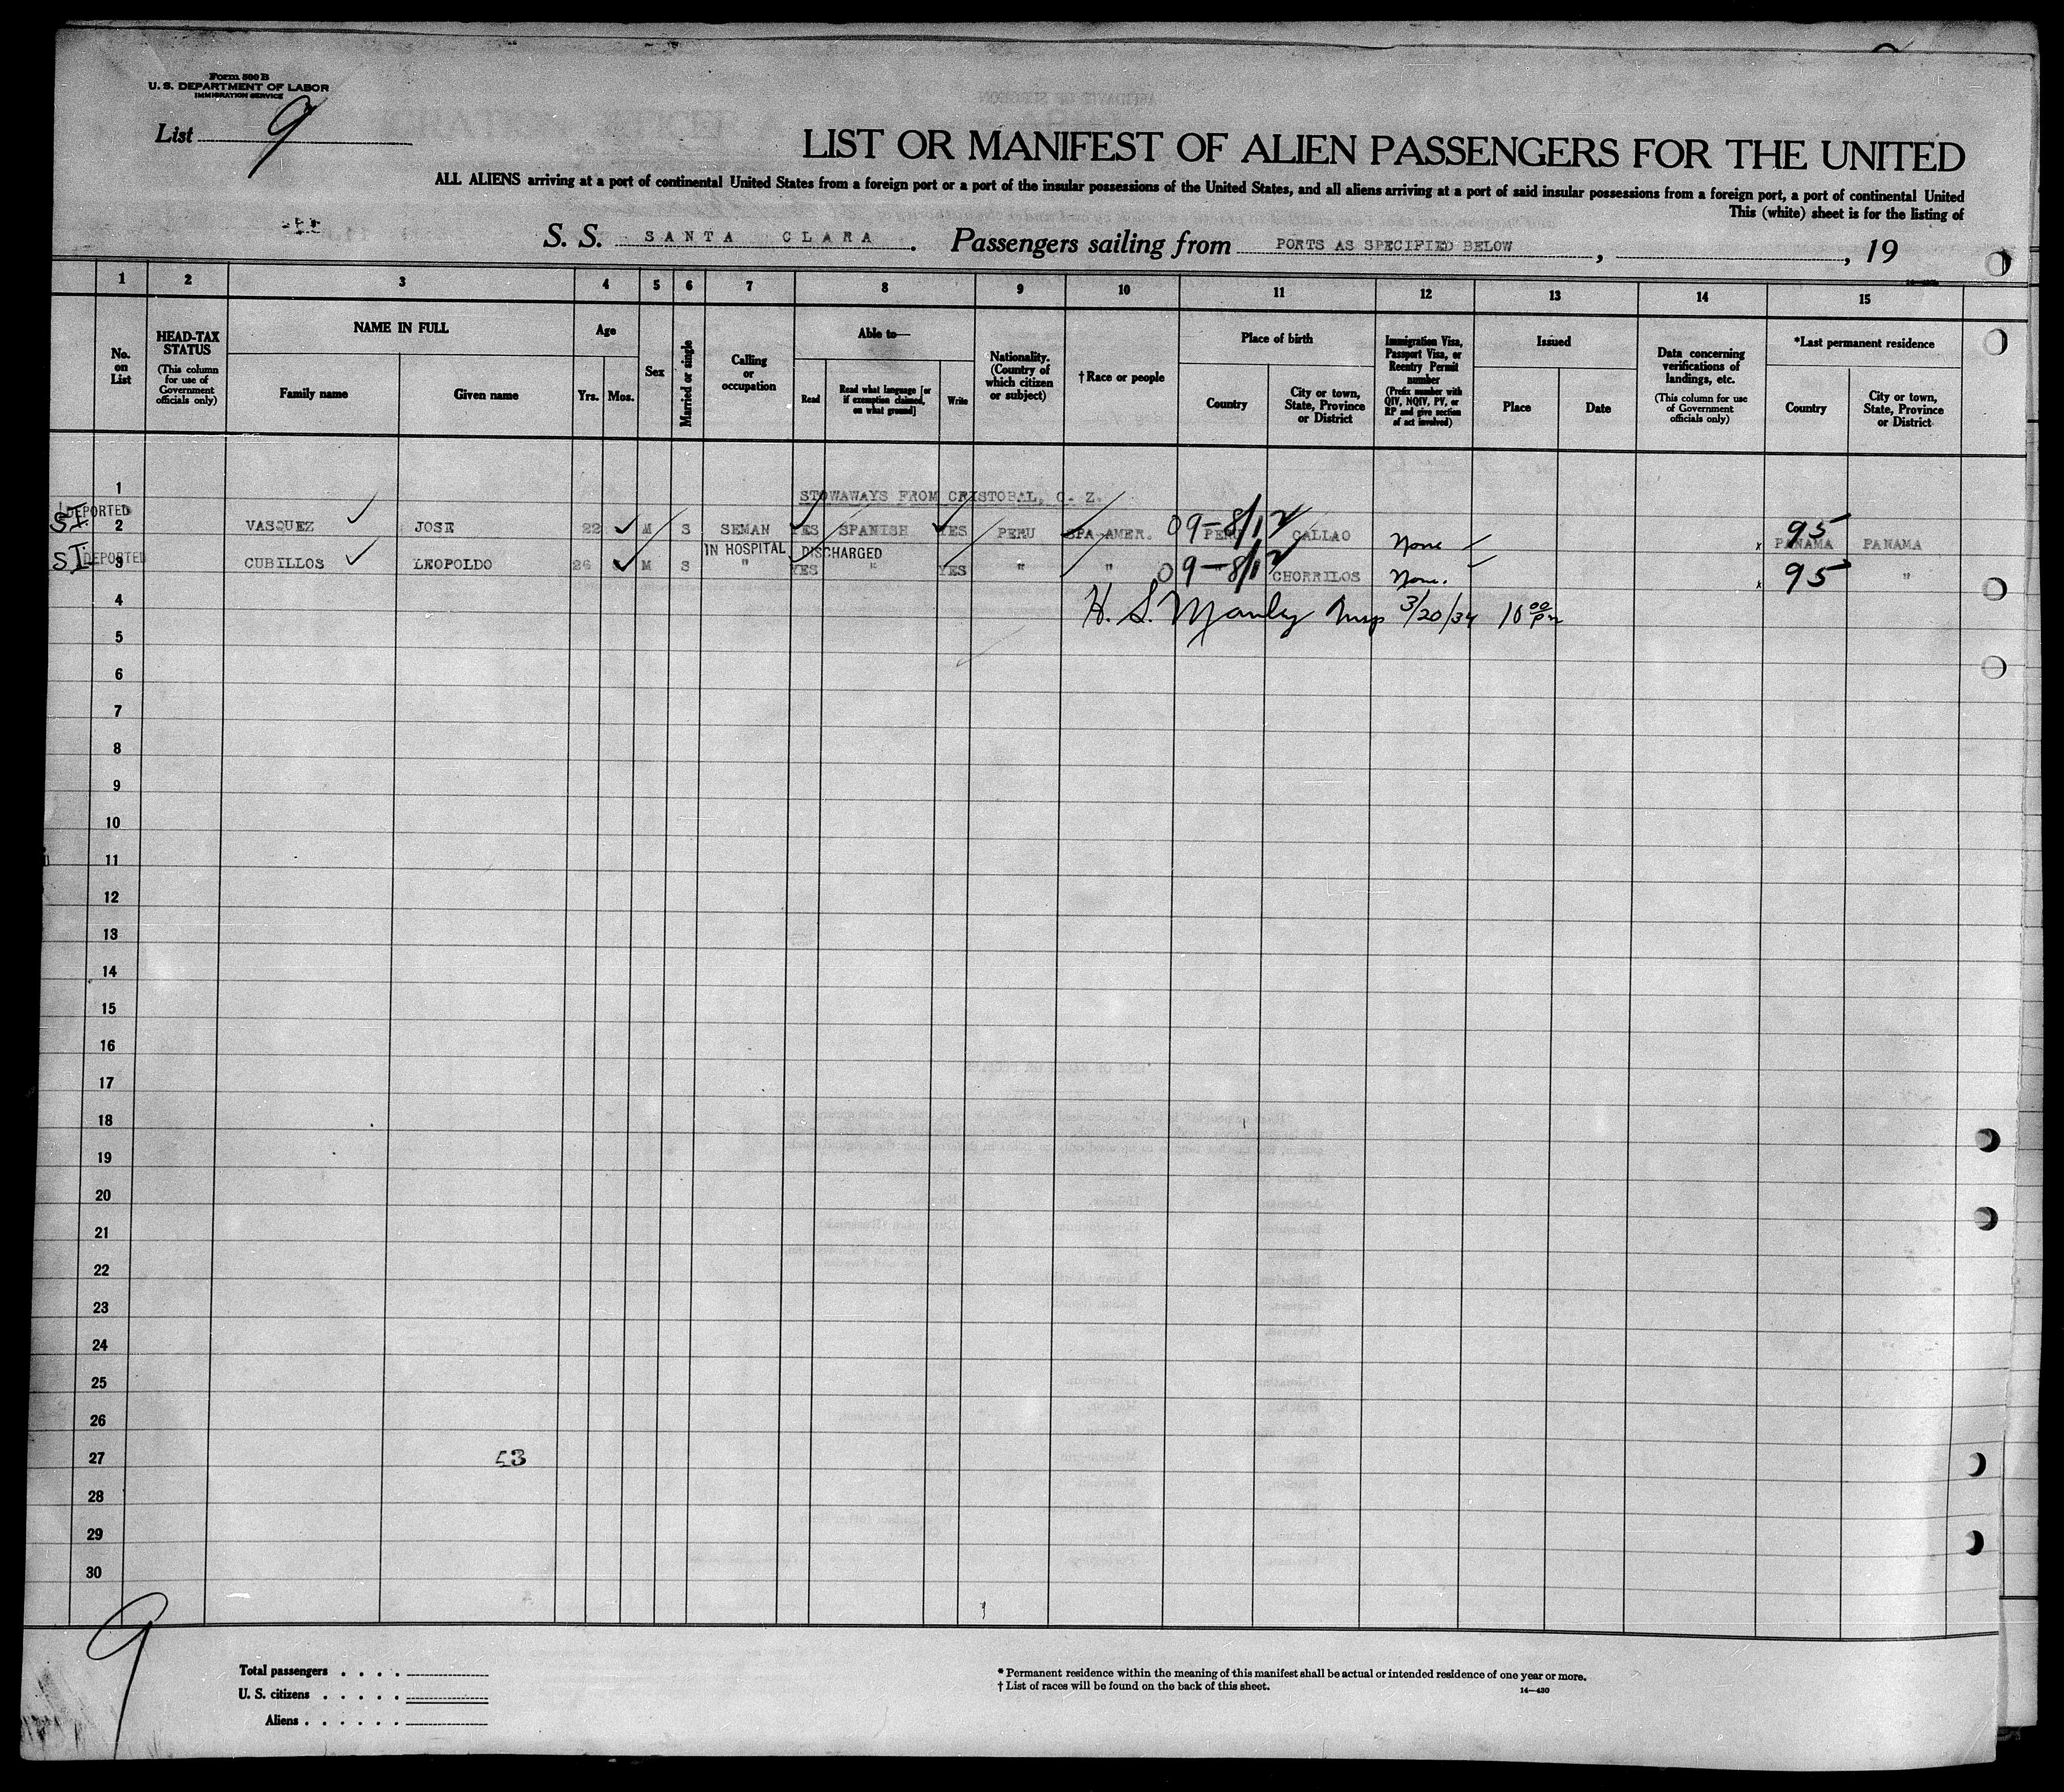 Form 500 B
U. S. DEPARTMENT OF LABOR
IMMIGRATION SERVICE
List 9
LIST OR MANIFEST OF ALIEN PASSENGERS FOR THE UNITED
ALL ALIENS arriving at a port of continental United States from a foreign port or a port of the insular possessions of the United States, and all aliens arriving at a port of said insular possessions from a foreign port, a port of continental United
This (white) sheet is for the listing of
S. S. SANTA CLARA . Passengers sailing from PORTS AS SPECIFIED BELOW , , 19
1 2 3 4 5 6 7 8 9 10 11 12 13 14 15
No. on List
HEAD-TAX STATUS
(This column for use of Government officials only)
NAME IN FULL
Family name
Given name
Age
Yrs. Mos.
Sex
Married or single
Calling or occupation
Able to—
Read
Read what language [or if exemption claimed, on what ground]
Write
Nationality. (Country of which citizen or subject)
† Race or people
Place of birth
Country
City or town, State, Province or District
Immigration Visa, Passport Visa, or Reentry Permit number
(Prefix number with QIV, NQIV, PV, or RP and give section of act involved)
Issued
Place
Date
Data concerning verifications of landings, etc.
(This column for use of Government officials only)
*Last permanent residence
Country
City or town, State, Province or District
1 STOWAWAYS FROM CRISTOBAL, C. Z.
DEPORTED
SI 2 VASQUEZ JOSE 22 M S SEMAN YES SPANISH YES PERU SPA-AMER. PERU CALLAO None x PANAMA PANAMA
09-8/12 95
IN HOSPITAL DISCHARGED
SI DEPORTED 3 CUBILLOS LEOPOLDO 26 M S " YES " YES " " " CHORRILOS None. x "
09-8/12 95
4 H. S. Manley Insp 3/20/34 10 00 pm
5
6
7
8
9
10
11
12
13
14
15
16
17
18
19
20
21
22
23
24
25
26
27 53
28
29
30
9
Total passengers . . . .
U. S. citizens . . . . .
Aliens . . . . . .
* Permanent residence within the meaning of this manifest shall be actual or intended residence of one year or more.
† List of races will be found on the back of this sheet.
14—430